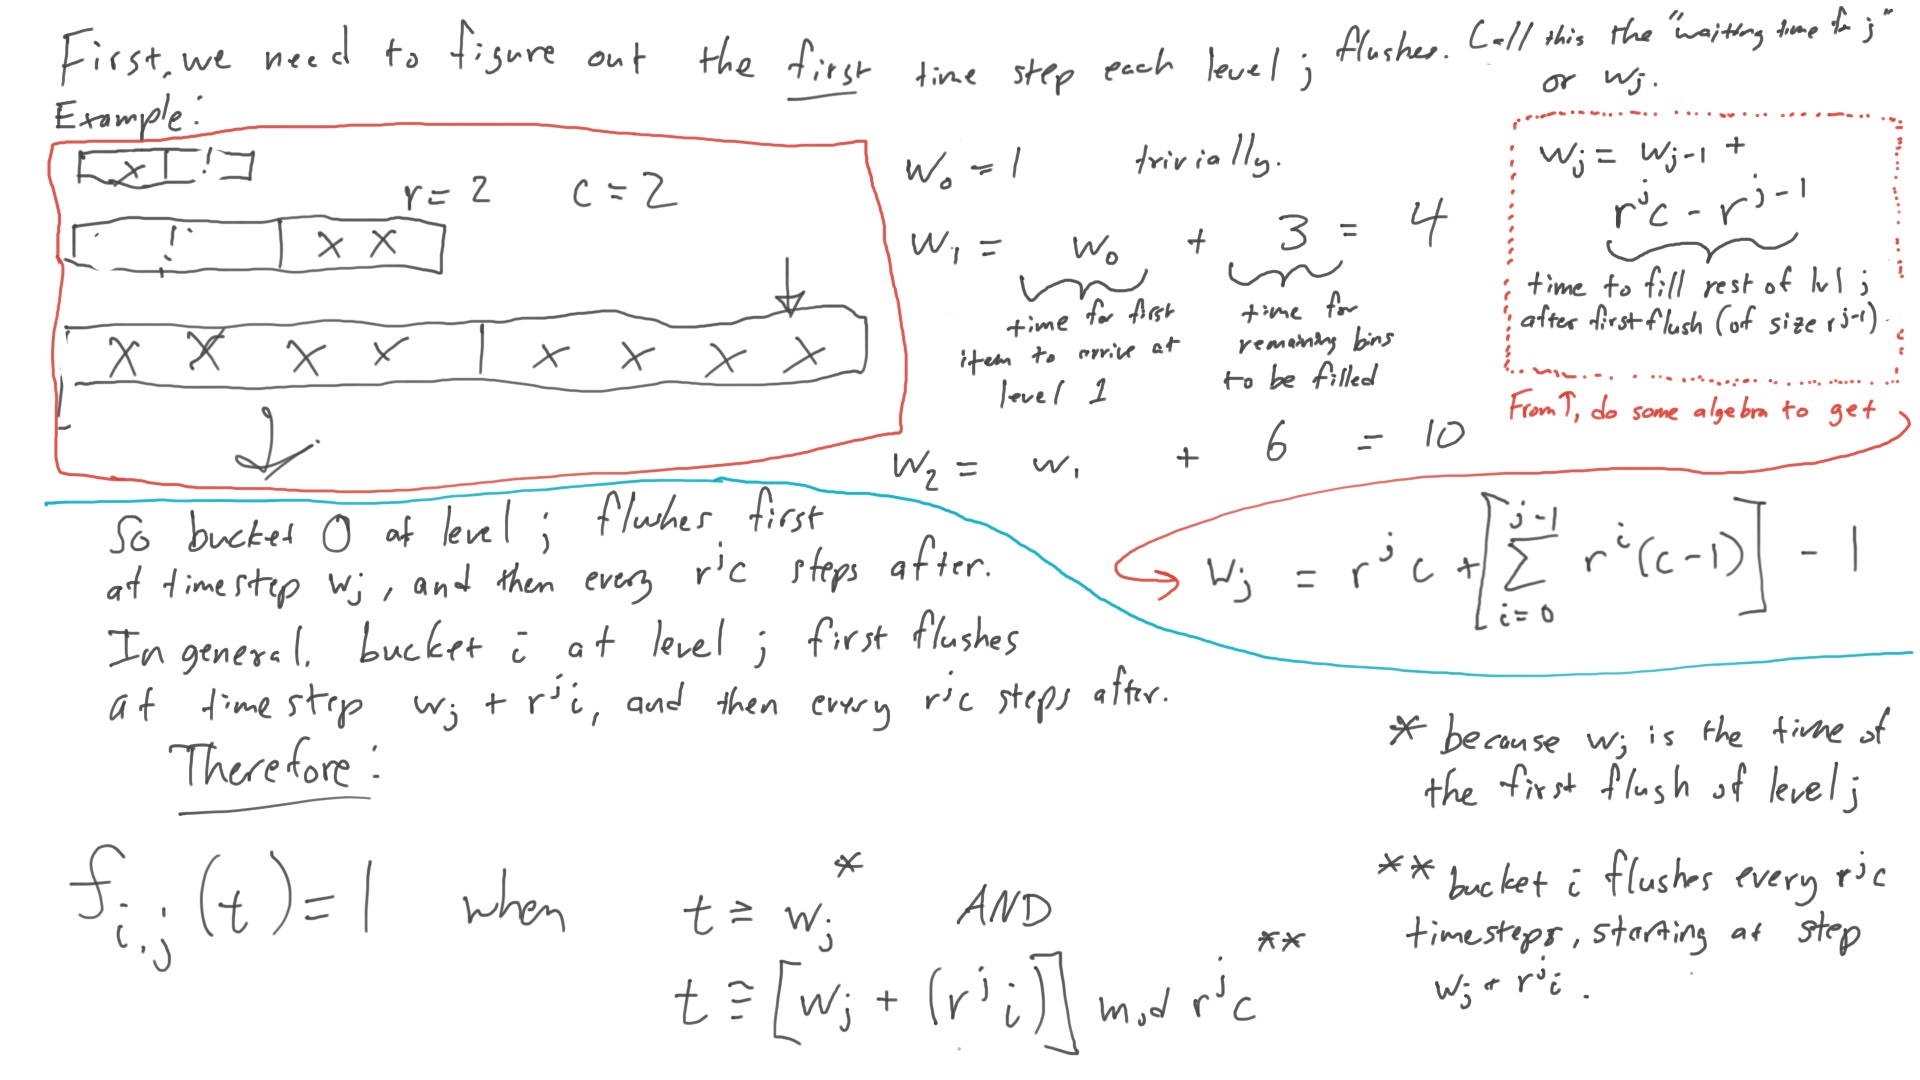 First, we need to figure out the first time step each level j flushes. Call this the "waiting time for j"
or wj.
Example:
x | !
r = 2 c = 2
! | x x
x x x x | x x x x
w0 = 1 trivially.
w1 = w0 + 3 = 4
time for first
item to arrive at
level 1
time for
remaining bins
to be filled
w2 = w1 + 6 = 10
wj = wj-1 +
r^j c - r^j-1
time to fill rest of lvl j
after first flush (of size r^j-1)
From ↑, do some algebra to get
wj = r^j c + [∑_{i=0}^{j-1} r^i (c-1)] - 1
So bucket 0 at level j flushes first
at timestep wj, and then every r^j c steps after.
In general, bucket i at level j first flushes
at timestep wj + r^j i, and then every r^j c steps after.
Therefore:
f_i,j (t) = 1 when t ≥ wj * AND
t ≅ [wj + (r^j i)] mod r^j c **
* because wj is the time of
the first flush of level j
** bucket i flushes every r^j c
timesteps, starting at step
wj + r^j i.